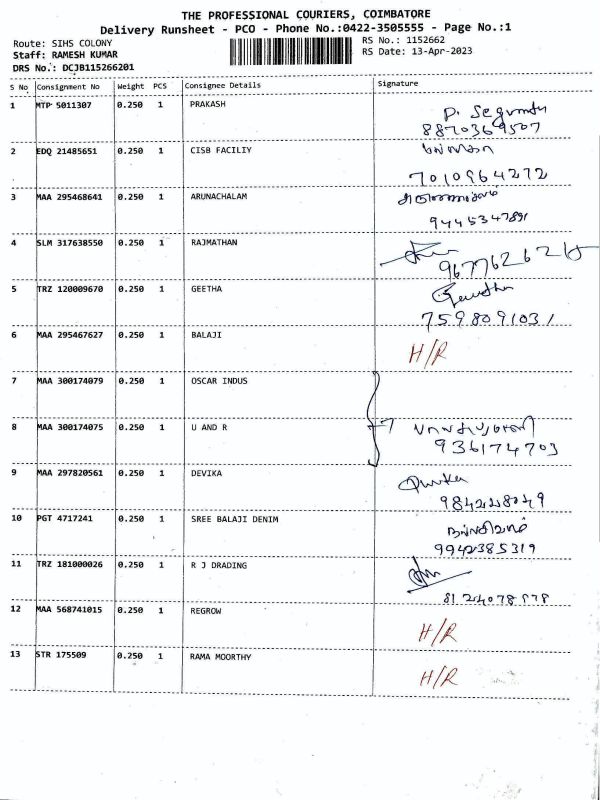 THE PROFESSIONAL COURIERS, COIMBATORE
Delivery Runsheet - PCO - Phone No.:0422-3505555 - Page No.:1
Route: SIHS COLONY
RS No.: 1152662
Staff: RAMESH KUMAR
RS Date: 13-Apr-2023
DRS No.: DCJB115266201
S No Consignment No Weight PCS Consignee Details Signature
1 MTP 5011307 0.250 1 PRAKASH
8870369507
2 EDQ 21485651 0.250 1 CISB FACILIY
7010964272
3 MAA 295468641 0.250 1 ARUNACHALAM அருணாசலம்
9445347891
4 SLM 317638550 0.250 1 RAJMATHAN
5 TRZ 120009670 0.250 1 GEETHA Geetha
7598091031
6 MAA 295467627 0.250 1 BALAJI H/R
7 MAA 300174079 0.250 1 OSCAR INDUS
8 MAA 300174075 0.250 1 U AND R
936174703
9 MAA 297820561 0.250 1 DEVIKA
10 PGT 4717241 0.250 1 SREE BALAJI DENIM
9942385319
11 TRZ 181000026 0.250 1 R J DRADING
12 MAA 568741015 0.250 1 REGROW H/R
13 STR 175509 0.250 1 RAMA MOORTHY H/R